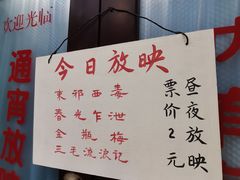 欢迎光临
通宵放
今日放映
东邪西毒
春光乍泄
金瓶梅
三毛流浪记
票价2元
昼夜放映